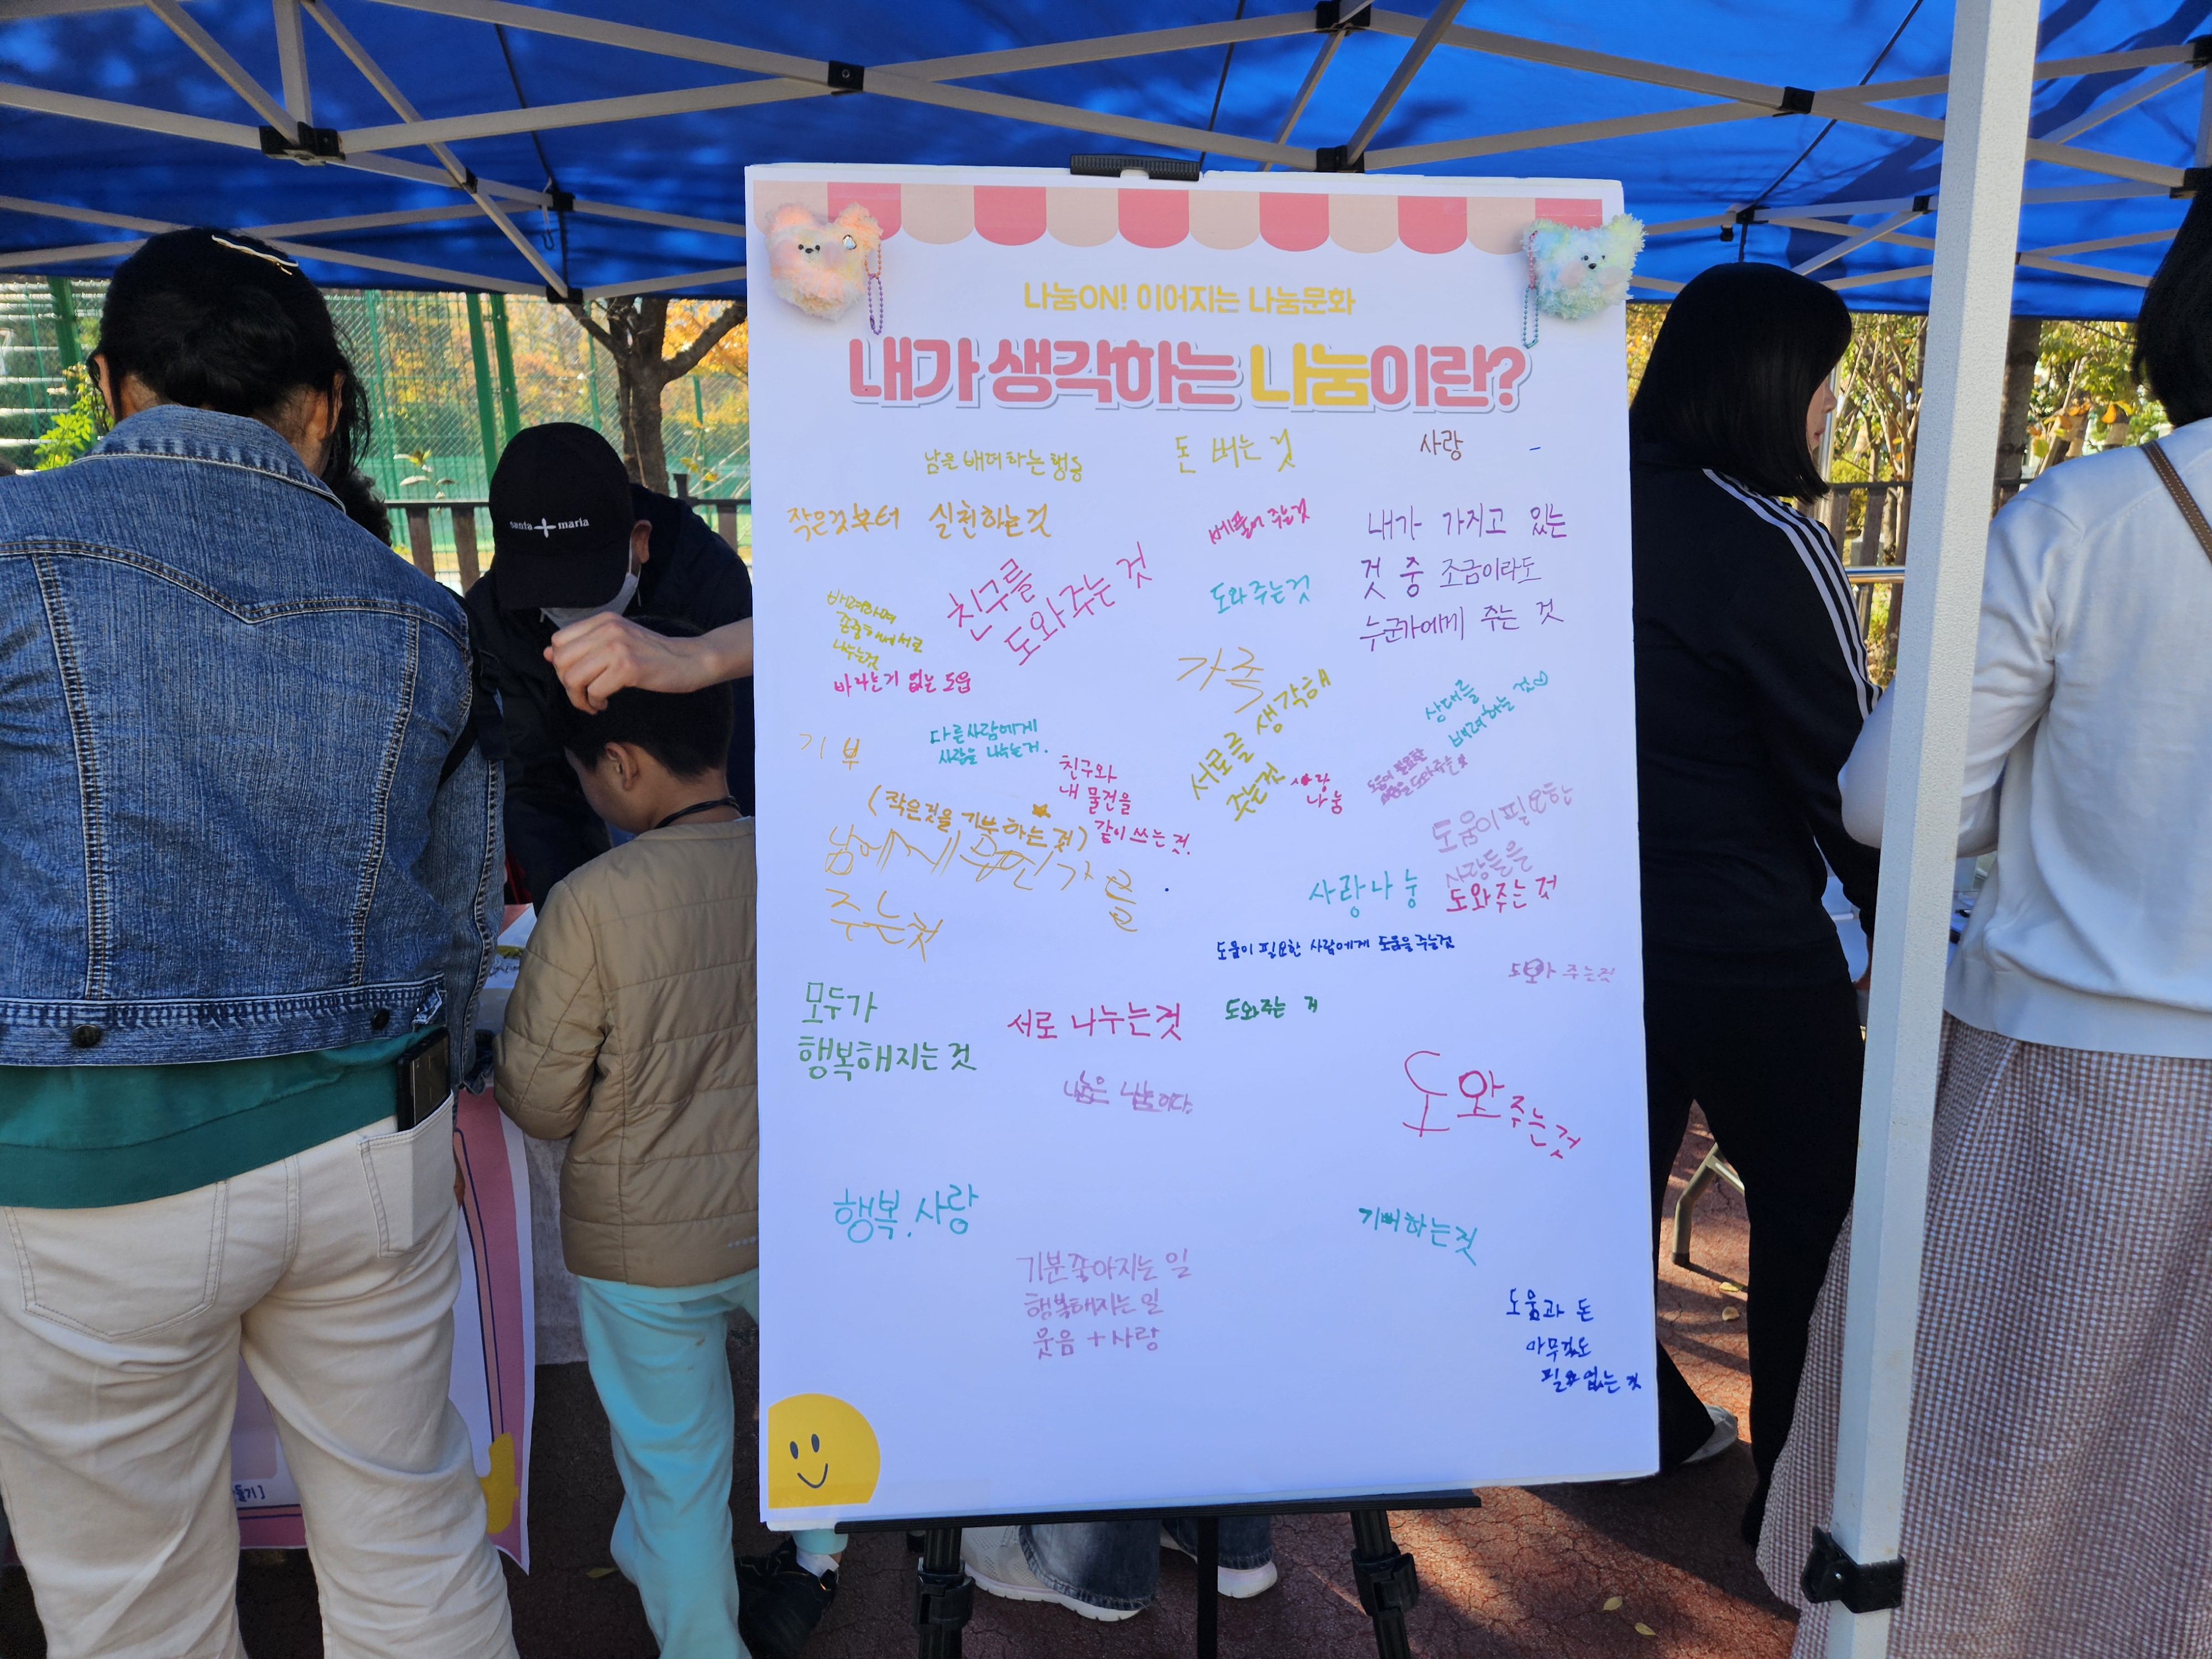 나눔ON! 이어지는 나눔문화
내가 생각하는 나눔이란?
남을 배려하는 행동
돈 버는 것
사랑
작은것부터 실천하는것
베풀어 주는것
내가 가지고 있는
것 중 조금이라도
누군가에게 주는 것
친구를
도와주는 것
도와주는것
배려하며
존중하며 서로
나누는것
바라는거 없는 도움
가족
서로를 생각해
주는것
상대를
배려하는 것♡
기부
다른사람에게
사랑을 나누는거.
친구와
내 물건을
같이 쓰는 것.
사랑
나눔
도움이 필요한
사람을 도와주는것
(작은것을 기부하는 것)
남에게 무언가를
주는것
도움이 필요한
사람들을
도와주는 것
사랑나눔
도움이 필요한 사람에게 도움을 주는것
도와 주는것
모두가
행복해지는 것
서로 나누는것
도와주는 거
나눔은 나눔이다.
도와주는것
행복.사랑
기뻐하는것
기분좋아지는 일
행복해지는 일
웃음 + 사랑
도움과 돈
아무것도
필요없는 것
santa maria